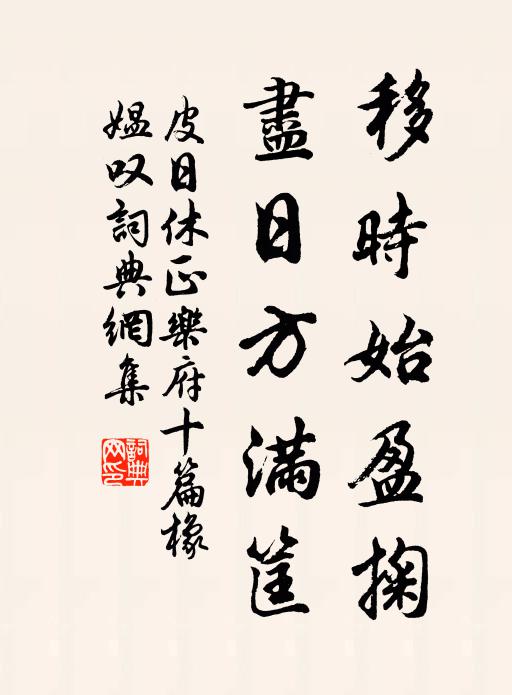 移時始盈掬
盡日方滿筐
皮日休正樂府十篇橡
媪叹詞典網集
詞典
网印